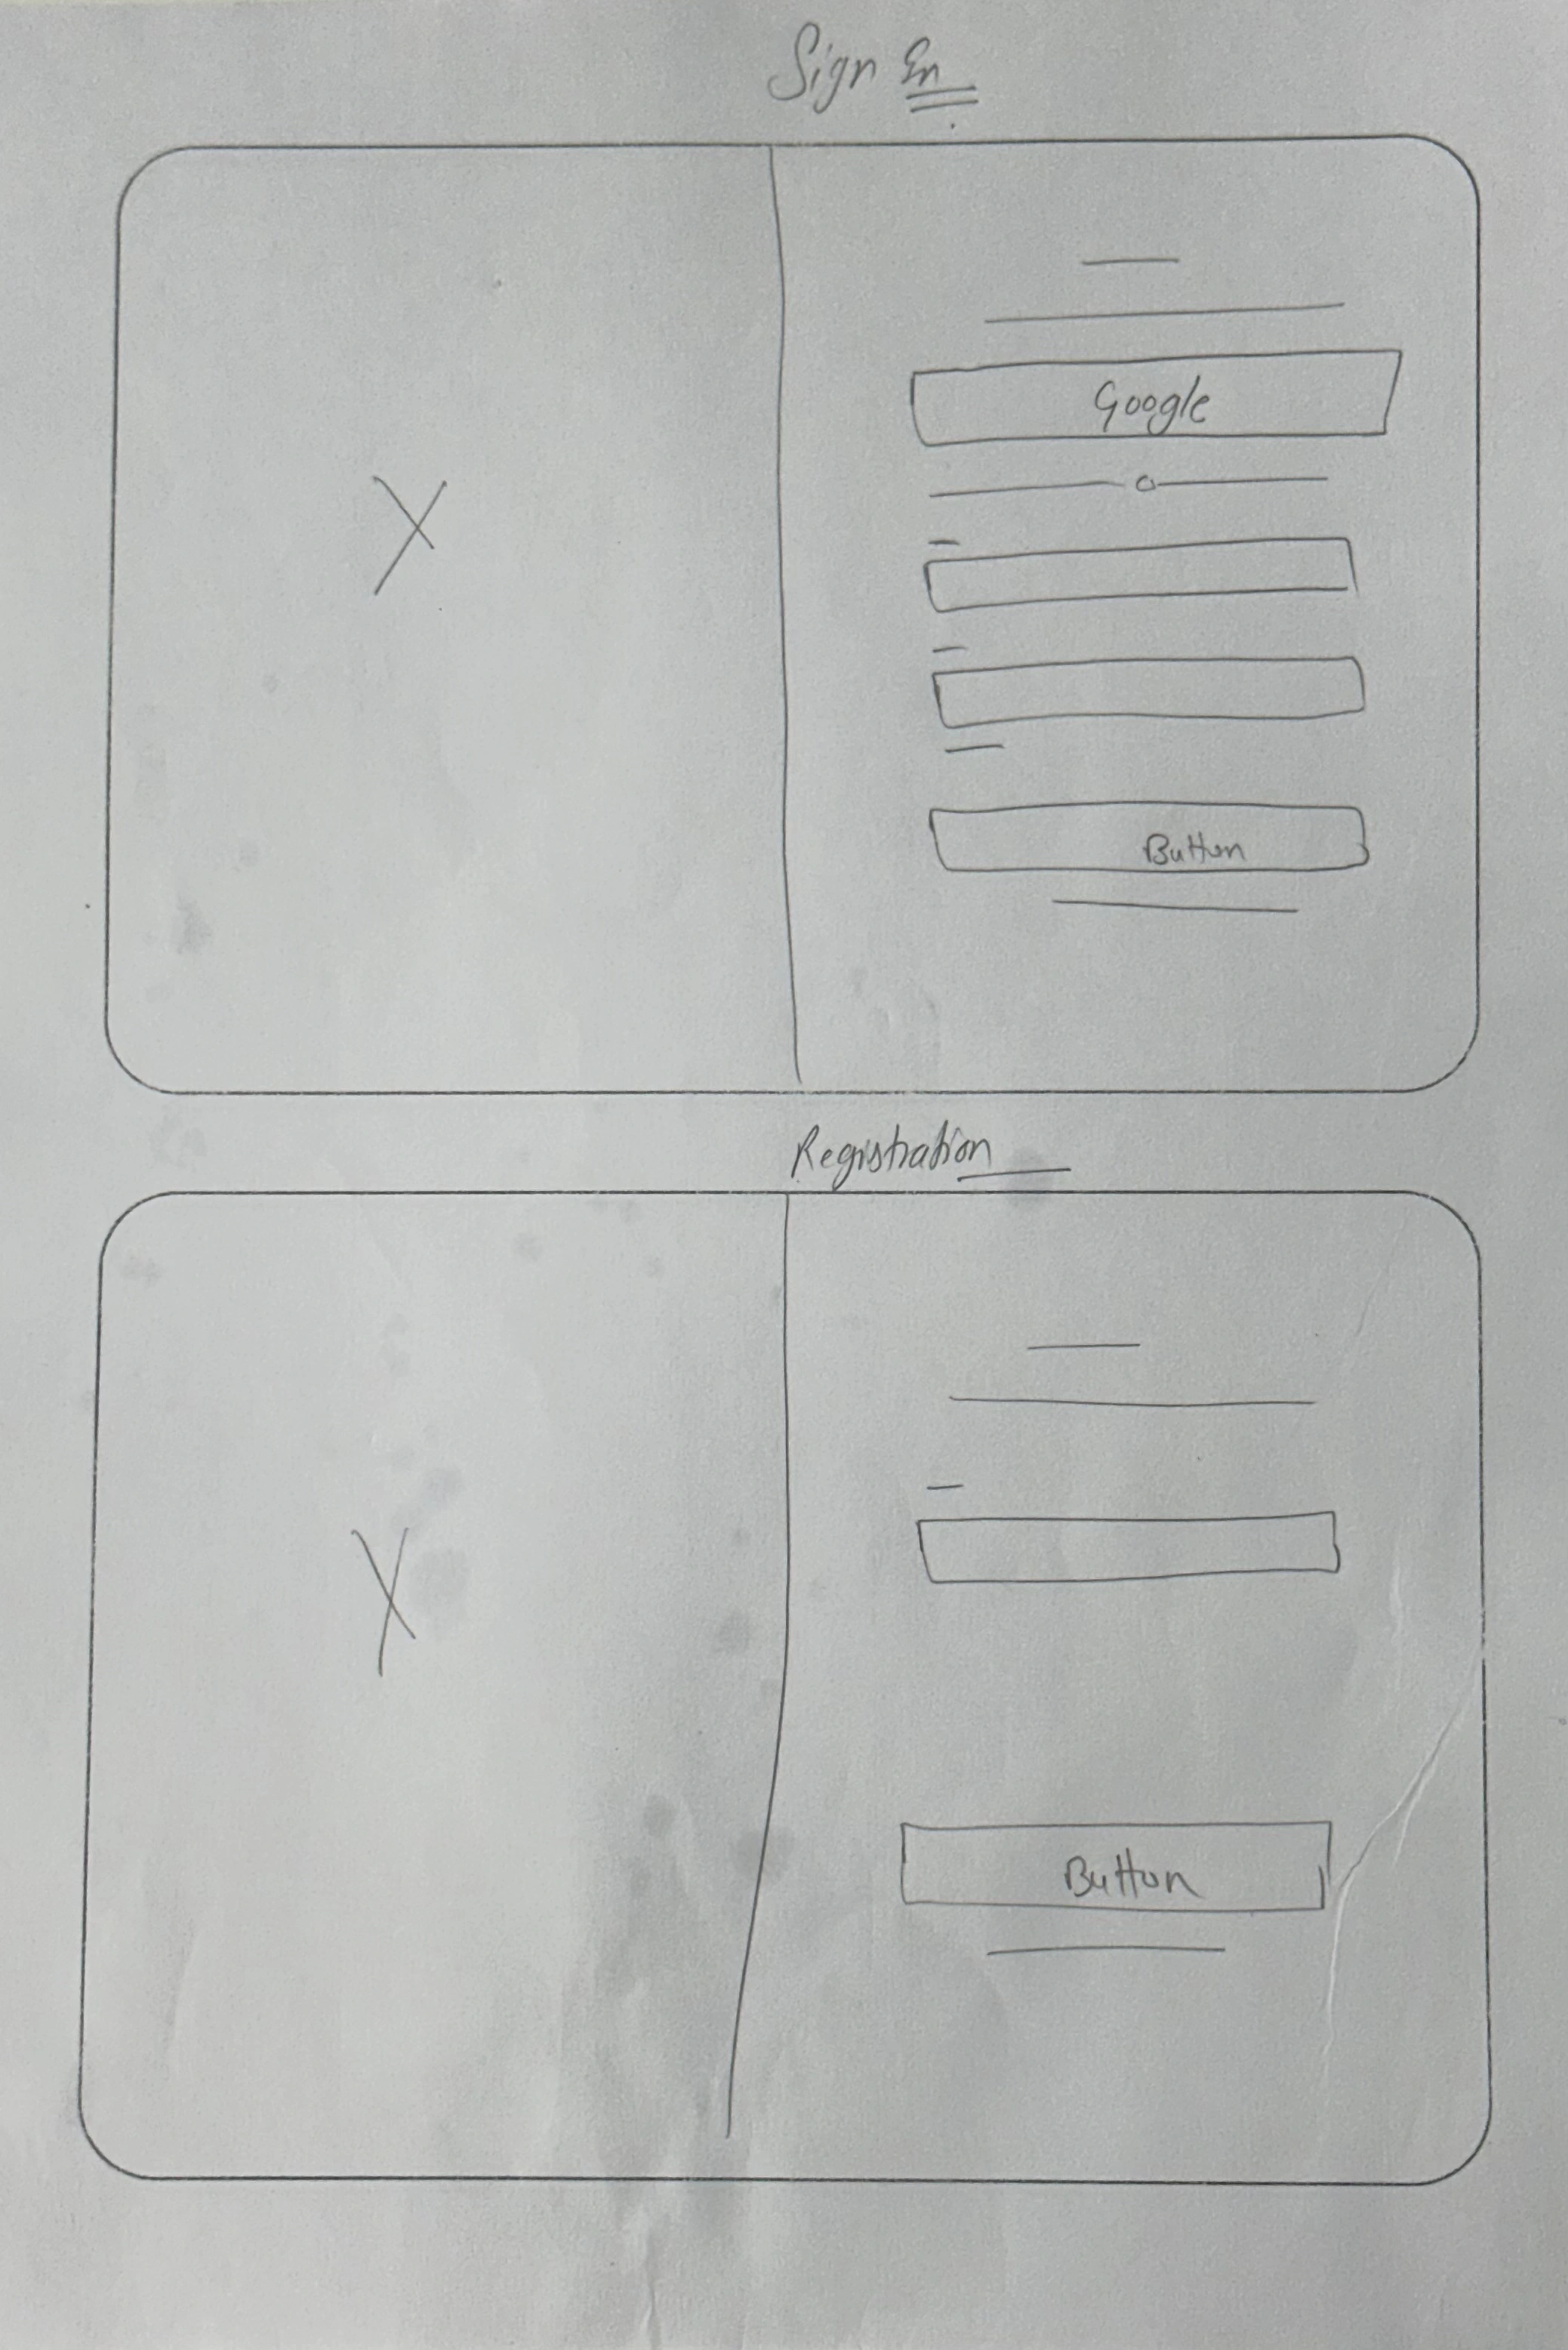 Sign In
Google
Button
Registration
Button